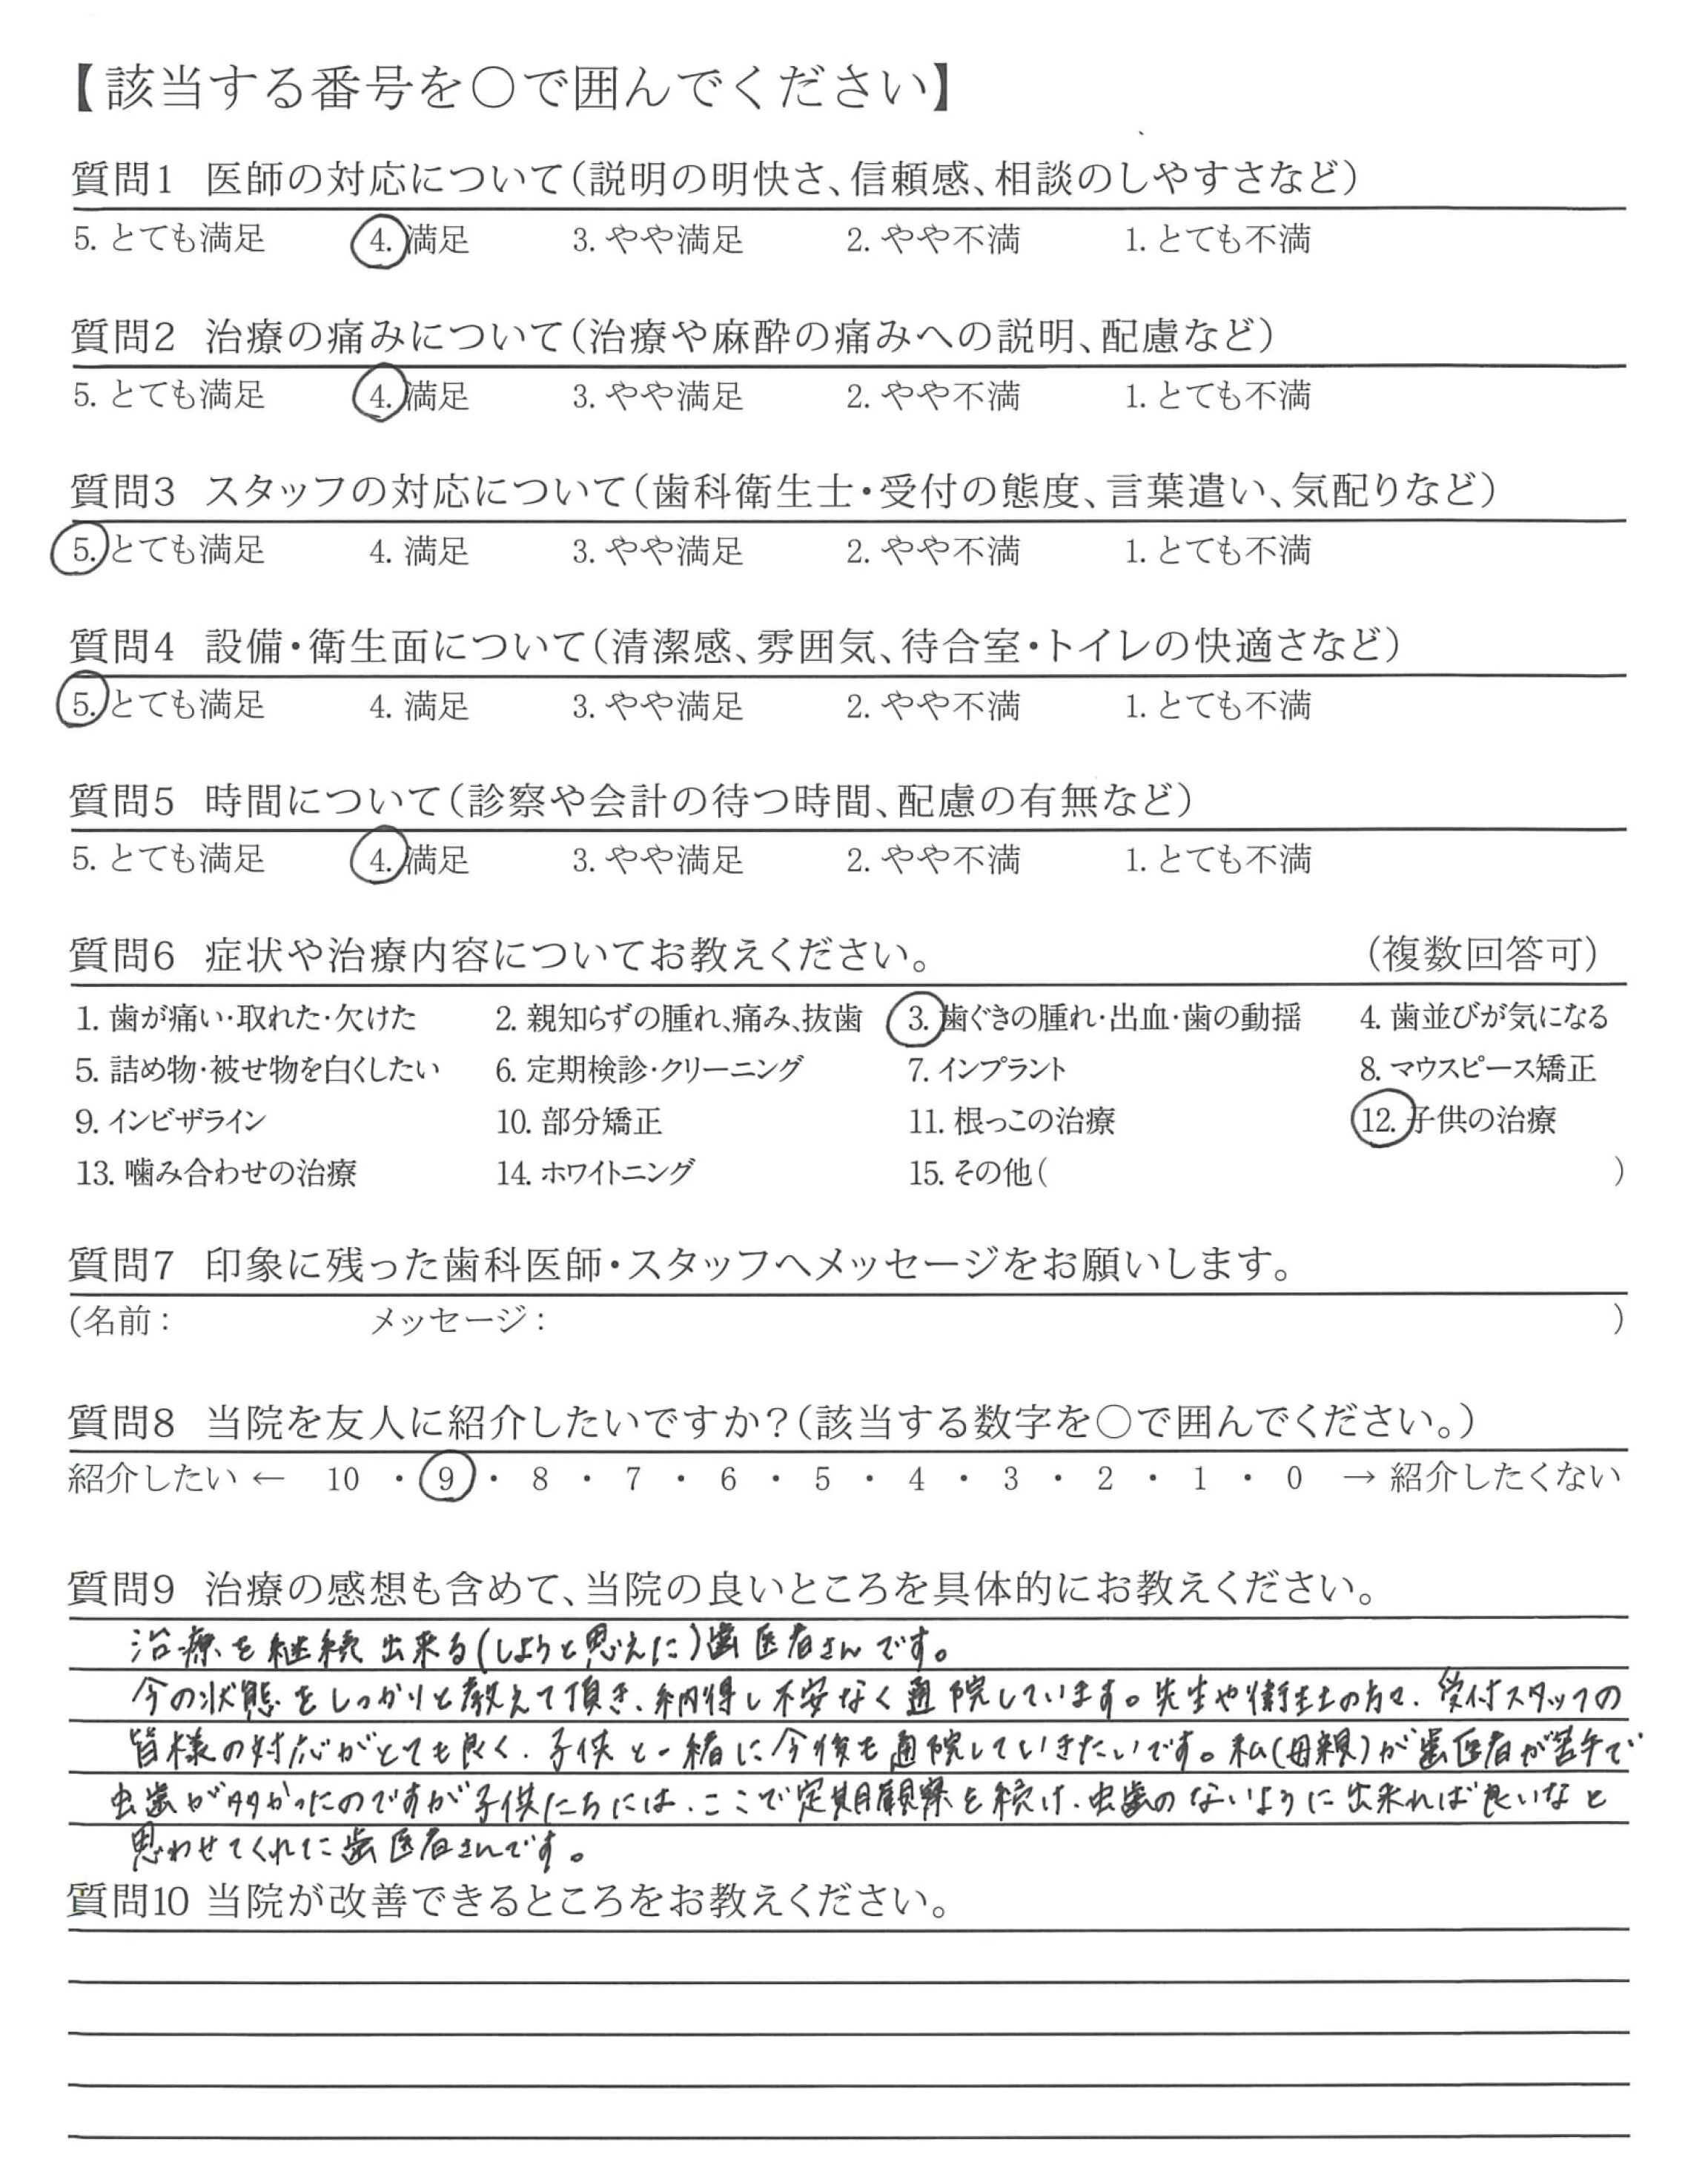 【該当する番号を○で囲んでください】
質問1 医師の対応について(説明の明快さ、信頼感、相談のしやすさなど)
5. とても満足 4. 満足 3. やや満足 2. やや不満 1. とても不満
質問2 治療の痛みについて(治療や麻酔の痛みへの説明、配慮など)
5. とても満足 4. 満足 3. やや満足 2. やや不満 1. とても不満
質問3 スタッフの対応について(歯科衛生士・受付の態度、言葉遣い、気配りなど)
5. とても満足 4. 満足 3. やや満足 2. やや不満 1. とても不満
質問4 設備・衛生面について(清潔感、雰囲気、待合室・トイレの快適さなど)
5. とても満足 4. 満足 3. やや満足 2. やや不満 1. とても不満
質問5 時間について(診察や会計の待つ時間、配慮の有無など)
5. とても満足 4. 満足 3. やや満足 2. やや不満 1. とても不満
質問6 症状や治療内容についてお教えください。 (複数回答可)
1. 歯が痛い・取れた・欠けた 2. 親知らずの腫れ、痛み、抜歯 3. 歯ぐきの腫れ・出血・歯の動揺 4. 歯並びが気になる
5. 詰め物・被せ物を白くしたい 6. 定期検診・クリーニング 7. インプラント 8. マウスピース矯正
9. インビザライン 10. 部分矯正 11. 根っこの治療 12. 子供の治療
13. 噛み合わせの治療 14. ホワイトニング 15. その他( )
質問7 印象に残った歯科医師・スタッフへメッセージをお願いします。
(名前: メッセージ: )
質問8 当院を友人に紹介したいですか?(該当する数字を○で囲んでください。)
紹介したい ← 10 ・ 9 ・ 8 ・ 7 ・ 6 ・ 5 ・ 4 ・ 3 ・ 2 ・ 1 ・ 0 → 紹介したくない
質問9 治療の感想も含めて、当院の良いところを具体的にお教えください。
治療を継続出来る(しようと思えた)歯医者さんです。
今の状態をしっかりと教えて頂き、納得し不安なく通院しています。先生や衛生士の方々、受付スタッフの
皆様の対応がとても良く、子供と一緒に今後も通院していきたいです。私(母親)が歯医者が苦手で
虫歯が多かったのですが子供たちには、ここで定期観察を続け、虫歯のないように出来れば良いなと
思わせてくれた歯医者さんです。
質問10 当院が改善できるところをお教えください。